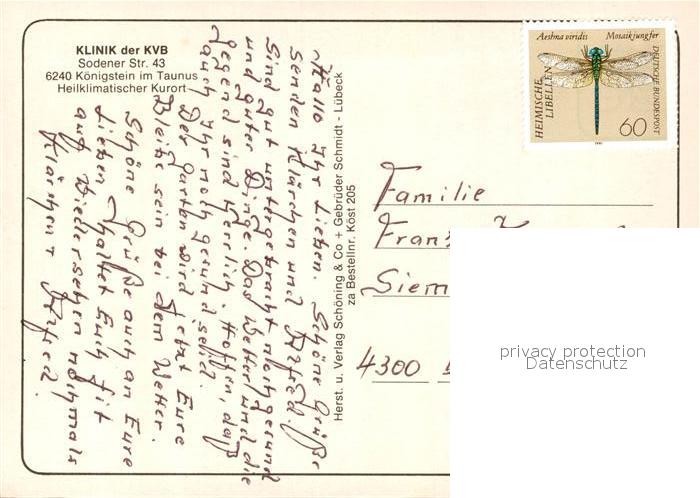 KLINIK der KVB
Sodener Str. 43
6240 Königstein im Taunus
Heilklimatischer Kurort
Hallo Ihr Lieben. Schöne Grüße
senden Klärchen und Alfred.
Sind gut untergebracht noch gesund
und guter Dinge. Das Wetter und die
Gegend sind herrlich. Hoffen, daß
auch Ihr noch gesund seid.
Der Garten wird jetzt Eure
Bleibe sein bei dem Wetter.
Schöne Grüße auch an Eure
Lieben haltet Euch fit
auf Wiedersehen nochmals
Klärchen + Alfred.
Herst. u. Verlag Schöning & Co + Gebrüder Schmidt - Lübeck
za Bestellnr. Köst 205
Aeshna viridis Mosaikjungfer
HEIMISCHE
LIBELLEN
DEUTSCHE BUNDESPOST
60
1991
Familie
Franz
Siem
4300
privacy protection
Datenschutz